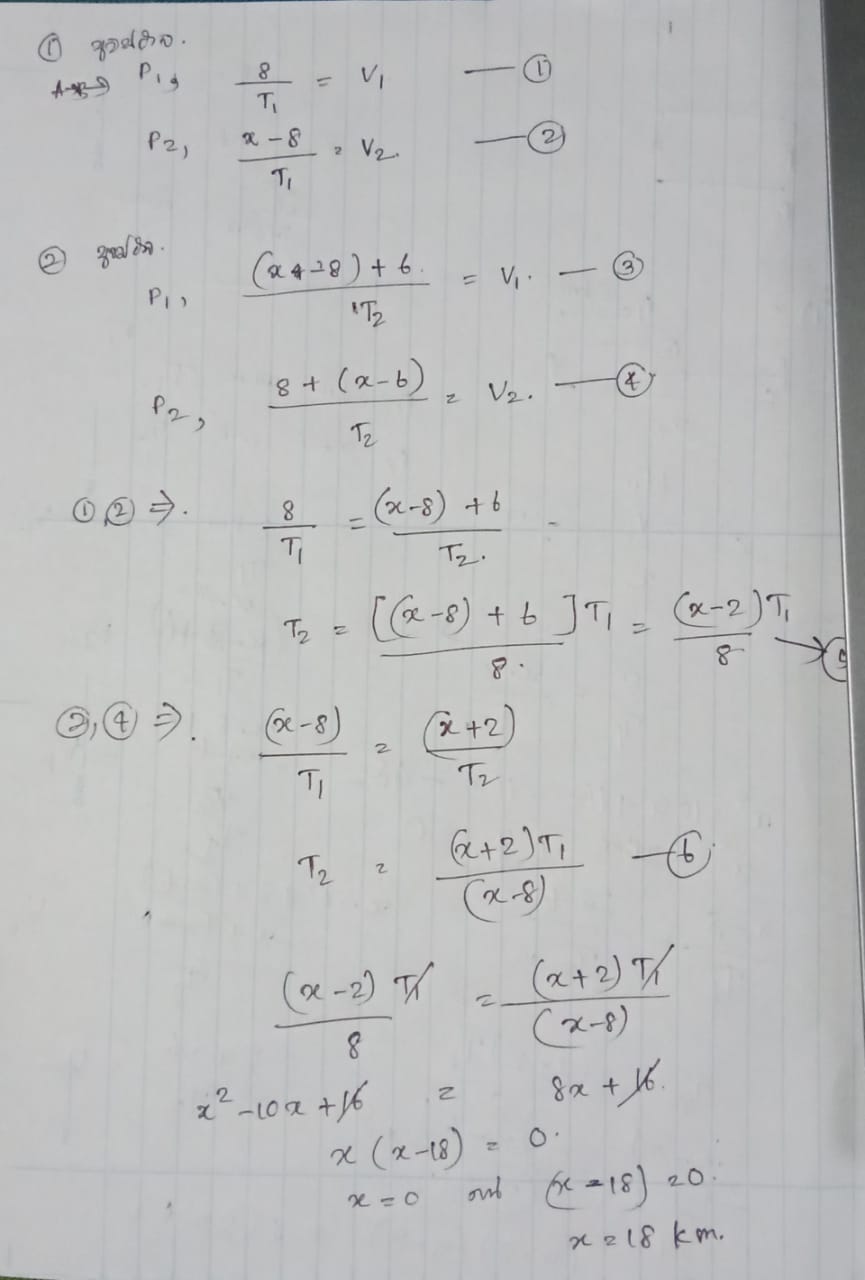 ①
P₁, 8/T₁ = V₁ — ①
P₂, (x - 8)/T₁ = V₂. — ②
②
P₁, ((x - 8) + 6)/T₂ = V₁. — ③
P₂, (8 + (x-6))/T₂ = V₂. — ④
①② ⇒. 8/T₁ = ((x-8) + 6)/T₂.
T₂ = [(x-8) + 6]T₁/8. = (x-2)T₁/8 →
②,④ ⇒. (x-8)/T₁ = (x+2)/T₂
T₂ = (x+2)T₁/(x-8) — ⑥
(x-2)T₁/8 = (x+2)T₁/(x-8)
x² -10x + 16 = 8x + 16.
x (x-18) = 0.
x = 0 (x - 18) = 0.
x = 18 km.